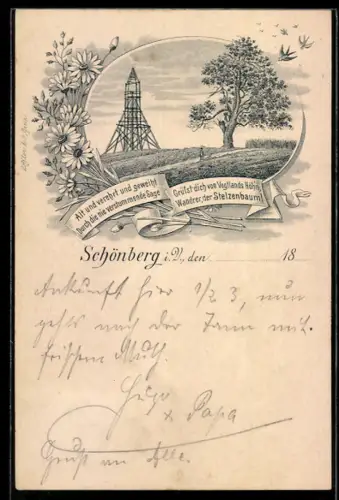 Alt und verehrt und geweiht
Durch die nie verstummende Sage
Grüßt dich von Vogtlands Höhn
Wandrer, der Stelzenbaum!
Schönberg i. V., den 18
Ankunft hier 1/2 3, nun
gehts nach der Tann mit
frischem Muth.
Hugo
x Papa
Gruß an Alle.